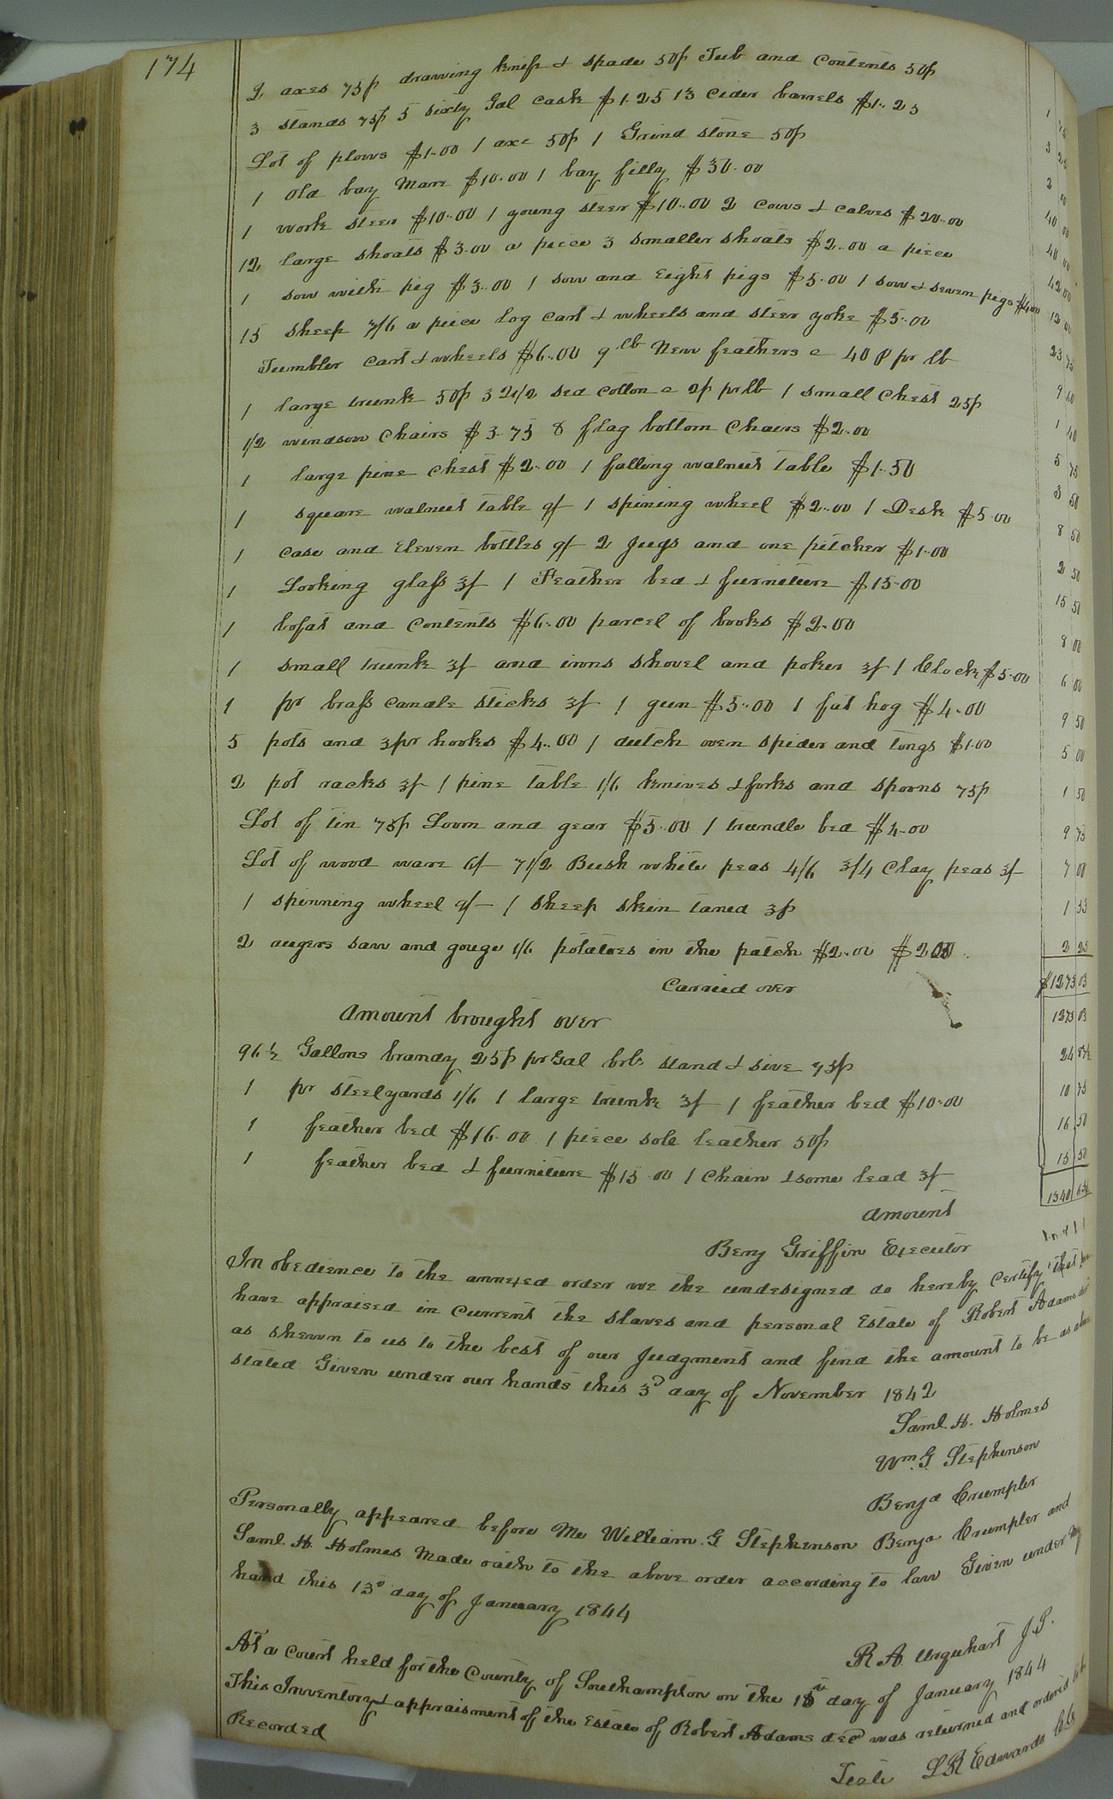 174
2 axes 75p drawing knife & spade 50p Tub and Contents 50p
3 stands 75p 5 sixty Gal cask $1.25 13 Cider barrels $1.25 3 25
Lot of plows $1.00 1 axe 50p 1 Grind stone 50p 2 00
1 old bay Mare $10.00 1 bay filly $30.00 40 00
1 work steer $10.00 1 young steer $10.00 2 cows & calves $20.00 40 00
12 large shoats $3.00 a piece 3 smaller shoats $2.00 a piece 42 00
1 sow with pig $3.00 1 sow and Eight pigs $5.00 1 sow & seven pigs $4.00 12 00
15 sheep 7/6 a piece log cart & wheels and steer yoke $5.00 23 75
Tumbler Cart & wheels $6.00 9 lb New feathers @ 40 p pr lb 9 60
1 large trunk 50p 32 1/2 sed cotton @ 2p pr lb 1 small Chest 25p 1 40
1/2 windsor Chairs $3.75 8 flag bottom Chairs $2.00 5 75
1 large pine Chest $2.00 1 falling walnut table $1.50 3 50
1 square walnut table 9/ 1 spining wheel $2.00 1 Desk $5.00 8 50
1 case and Eleven bottles 9/ 2 Jugs and one pitcher $1.00 2 50
1 Looking glass 3/ 1 Feather bed & furniture $15.00 15 50
1 bofat and Contents $6.00 parcel of books $2.00 8 00
1 small trunk 3/ and irons shovel and poker 3/ 1 Clock $5.00 6 00
1 pr brass Candle sticks 3/ 1 gun $5.00 1 fat hog $4.00 9 50
5 pots and 3 pr hooks $4.00 1 dutch oven spider and tongs $1.00 5 00
2 pot racks 3/ 1 pine table 1/6 knives & forks and spoons 75p 1 50
Lot of tin 75p Loom and gear $5.00 1 trundle bed $4.00 9 75
Lot of wood ware 6/ 7 1/2 Bush white peas 4/6 3/4 Clay peas 3/ 7 00
1 spinning wheel 1 sheep skin taned 3p 1 53
2 augers saw and gouge 1/6 potatoes in the patch $2.00 $2.00 2 25
Carried over $1273 03
Amount brought over 1273 03
96 1/2 Gallons brandy 25p pr Gal stand & sive 75p
1 pr steelyards 1/6 1 large trunk 3/ 1 feather bed $10.00 10 75
1 feather bed $16.00 1 piece sole leather 50p 16 50
1 feather bed & furniture $15.00 1 Chain & some lead 3/ 15 50
Amount
Benj Griffin Executor
In obedience to the annexed order we the undesigned do hereby Certify that
have appraised in Current the slaves and personal Estate of Robert Adams
as shewn to us to the best of our Judgment and find the amount to be as
stated Given under our hands this 3d day of November 1842
Saml. H. Holmes
Wm. G. Stephenson
Benja Crumpler
Personally appeared before Me William. G Stephenson Benja Crumpler and
Saml. H. Holmes Made oath to the above order according to law Given under my
hand this 13th day of January 1844
R A Urquhart J.P.
At a Court held for the County of Southampton on the 15th day of January 1844
This Inventory & appraisment of the Estate of Robert Adams decd was returned and ordered
Recorded
Teste L R Edwards